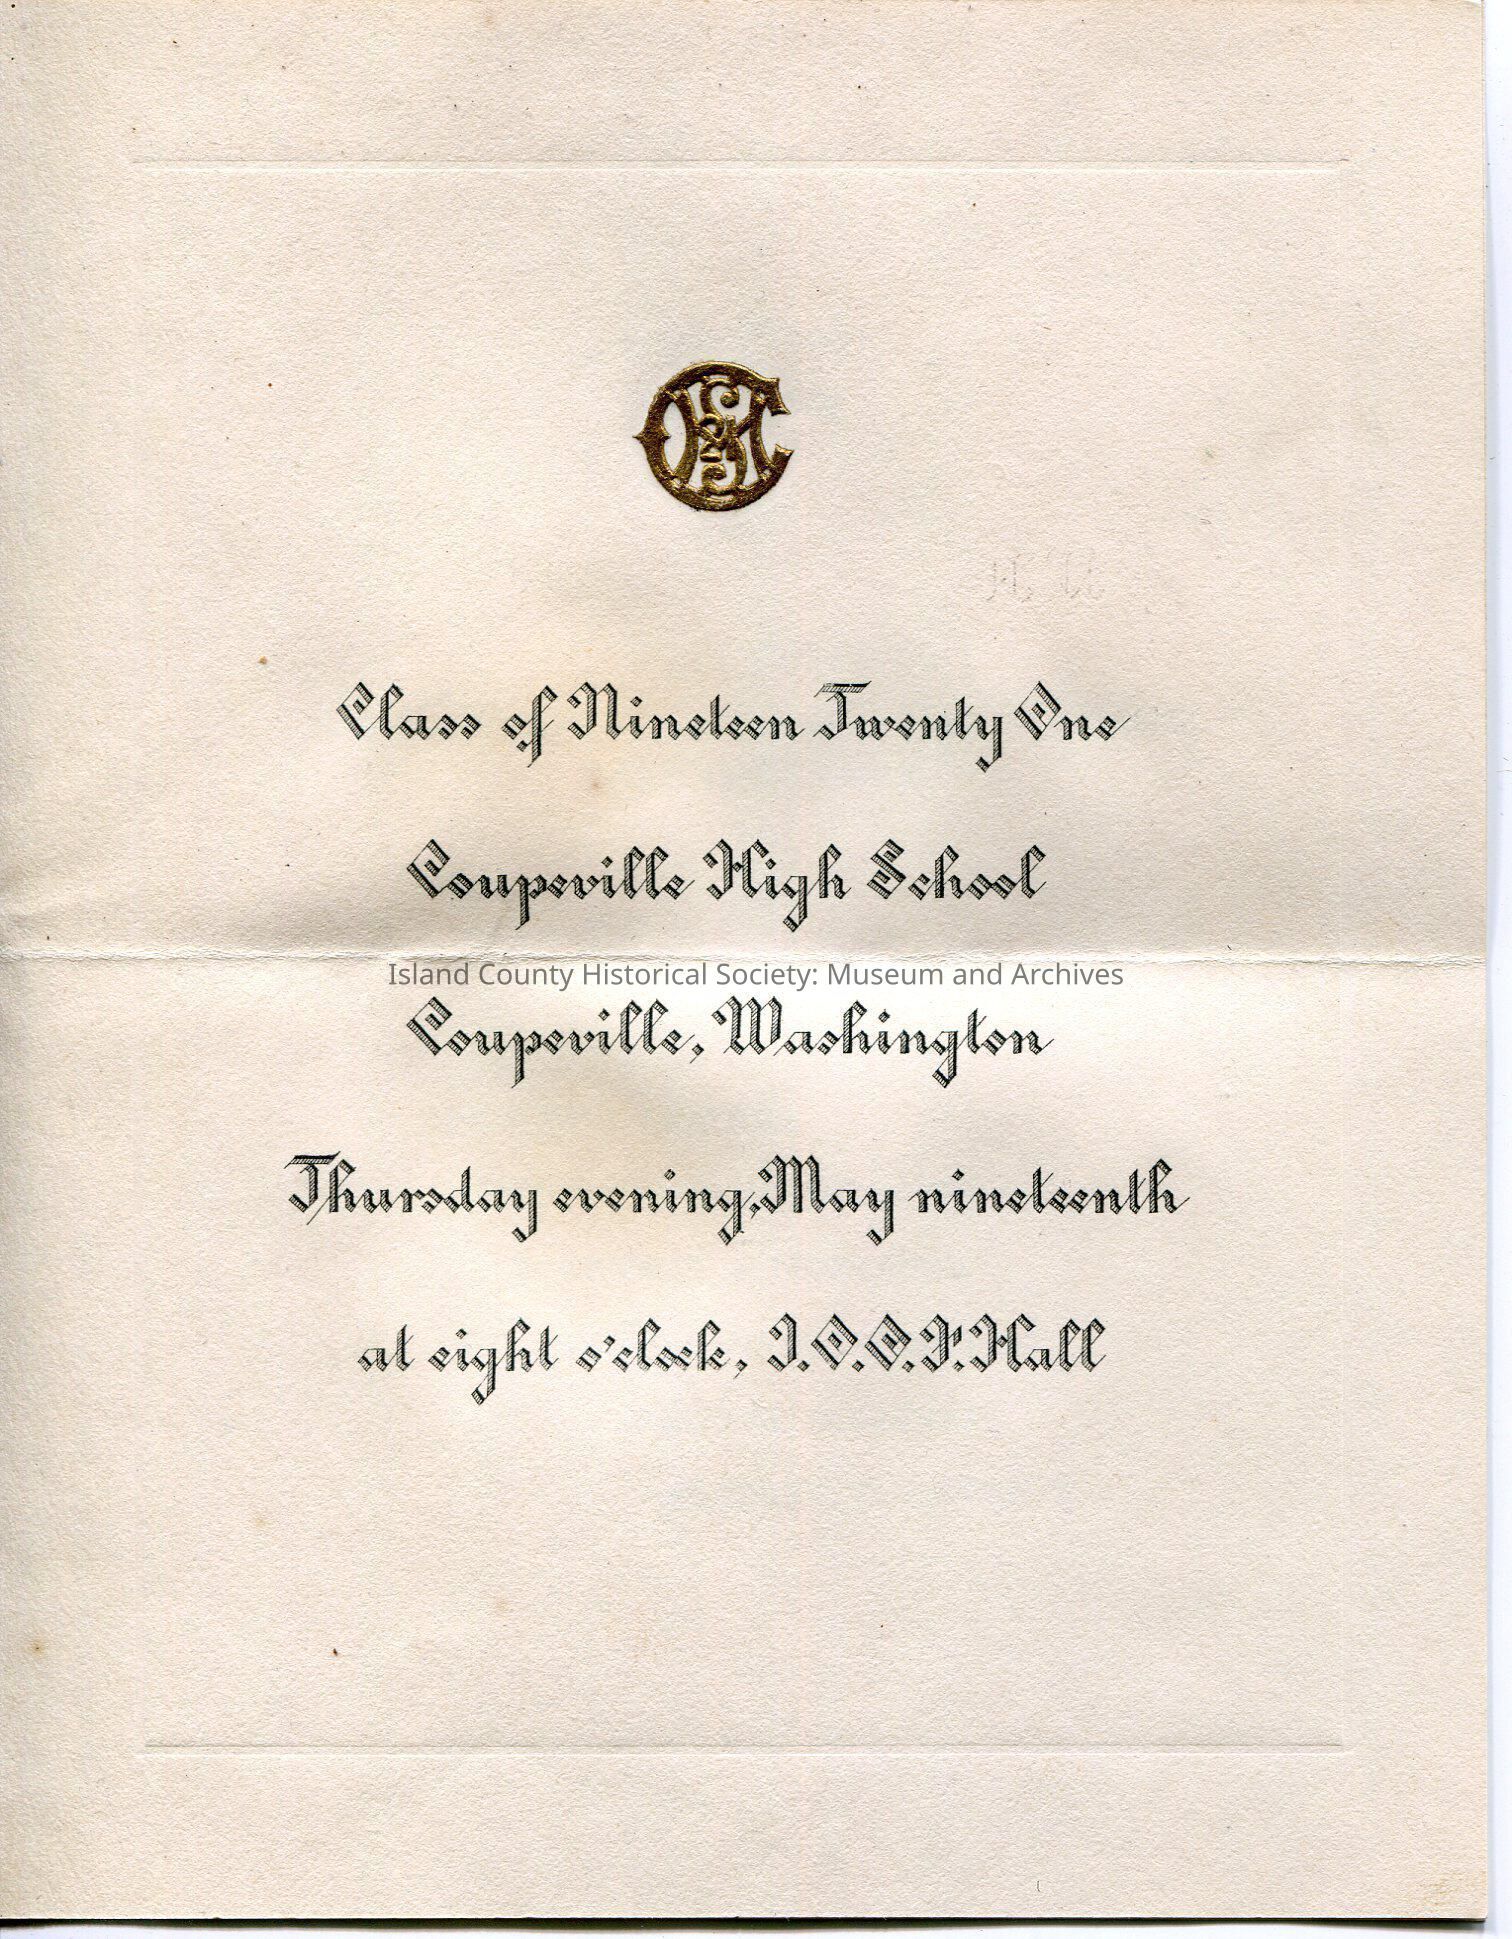 CHS 21
Class of Nineteen Twenty One
Coupeville High School
Island County Historical Society: Museum and Archives
Coupeville, Washington
Thursday evening, May nineteenth
at eight o'clock, I.O.O.F. Hall